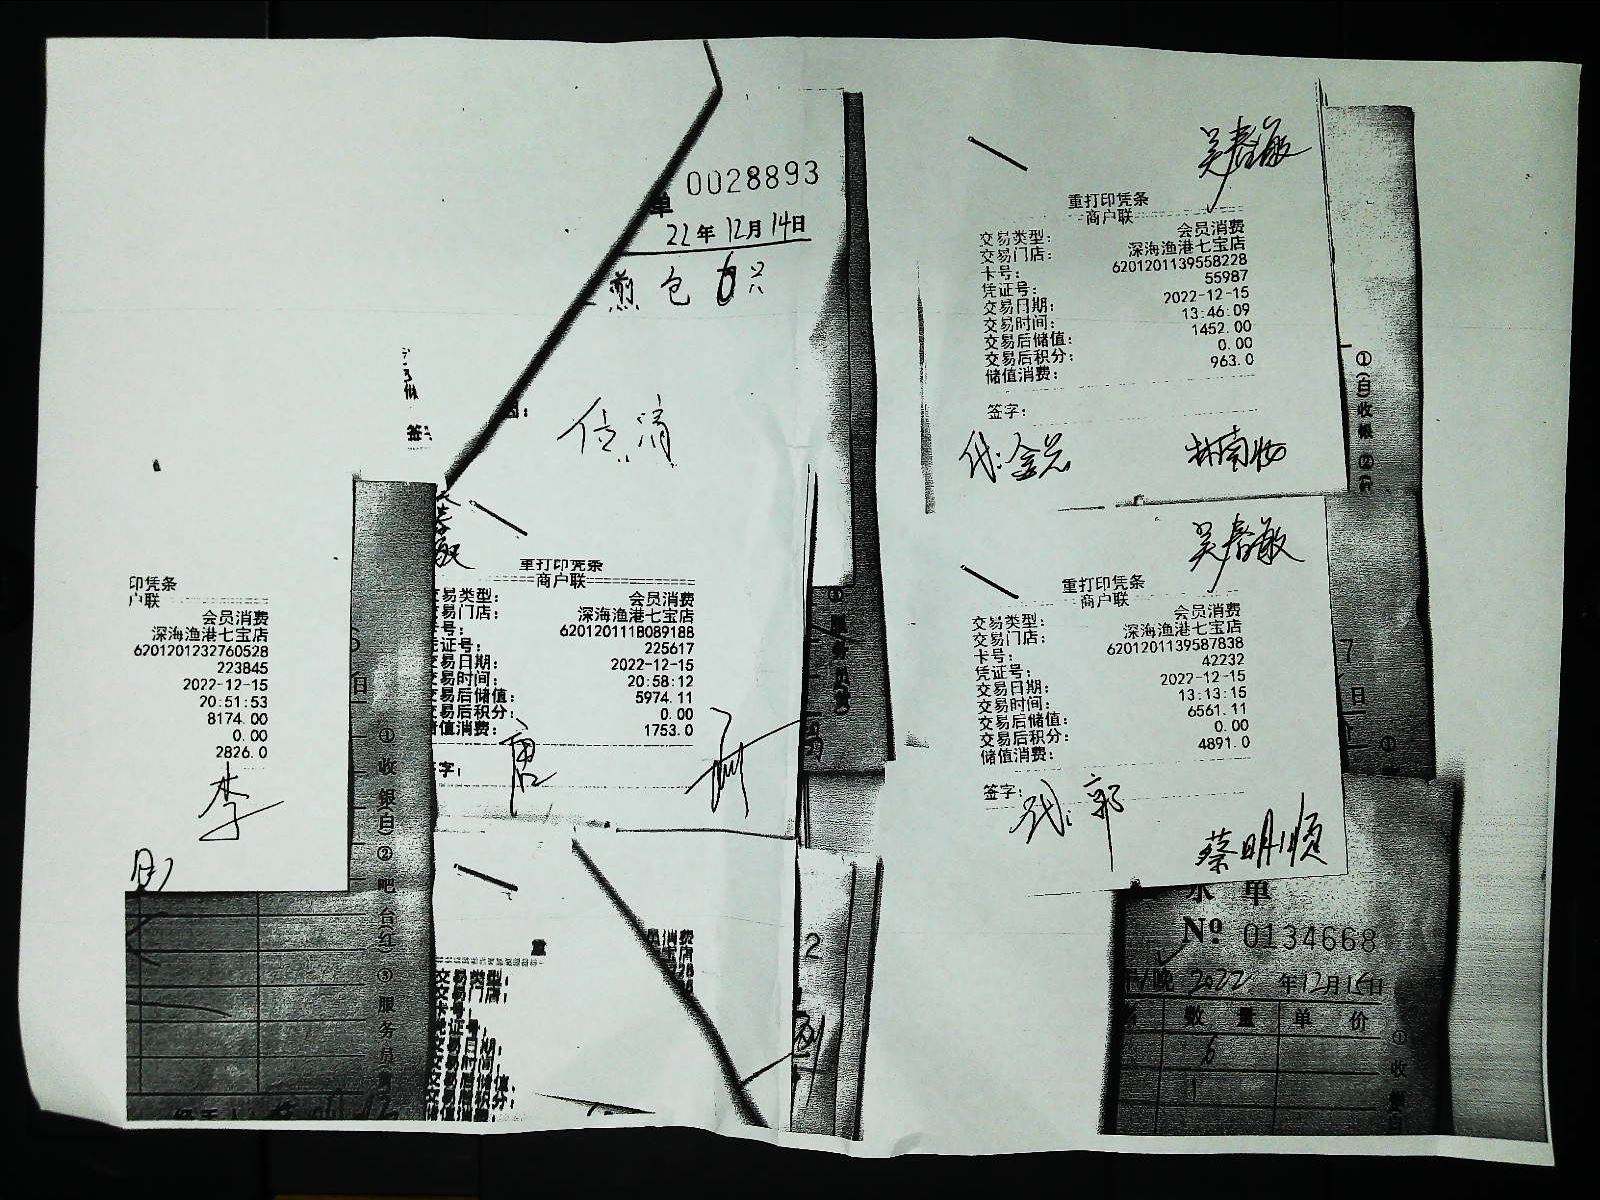 0028893
单
22年12月14日
煎包6只
签
印凭条
户联
会员消费
深海渔港七宝店
6201201232760528
223845
2022-12-15
20:51:53
8174.00
0.00
2826.0
李
重打印凭条
商户联
易类型: 会员消费
易门店: 深海渔港七宝店
号: 6201201118089188
证号: 225617
易日期: 2022-12-15
交易时间: 20:58:12
交易后储值: 5974.11
交易后积分: 0.00
值消费: 1753.0
字:
吴春敏
重打印凭条
商户联
交易类型: 会员消费
交易门店: 深海渔港七宝店
卡号: 6201201139558228
凭证号: 55987
交易日期: 2022-12-15
交易时间: 13:46:09
交易后储值: 1452.00
交易后积分: 0.00
储值消费: 963.0
签字:
①(白)收银 ②(
吴春敏
重打印凭条
商户联
交易类型: 会员消费
交易门店: 深海渔港七宝店
卡号: 6201201139587838
凭证号: 42232
交易日期: 2022-12-15
交易时间: 13:13:15
交易后储值: 6561.11
交易后积分: 0.00
储值消费: 4891.0
签字:
代:郭
蔡明顺
7
日
①收银(白)②吧台(红)③服务员(
交易类型:
交易门店:
卡号:
2
单
Nº 0134668
/晚 2022年12月16日
数量 单价
6
1
①收银